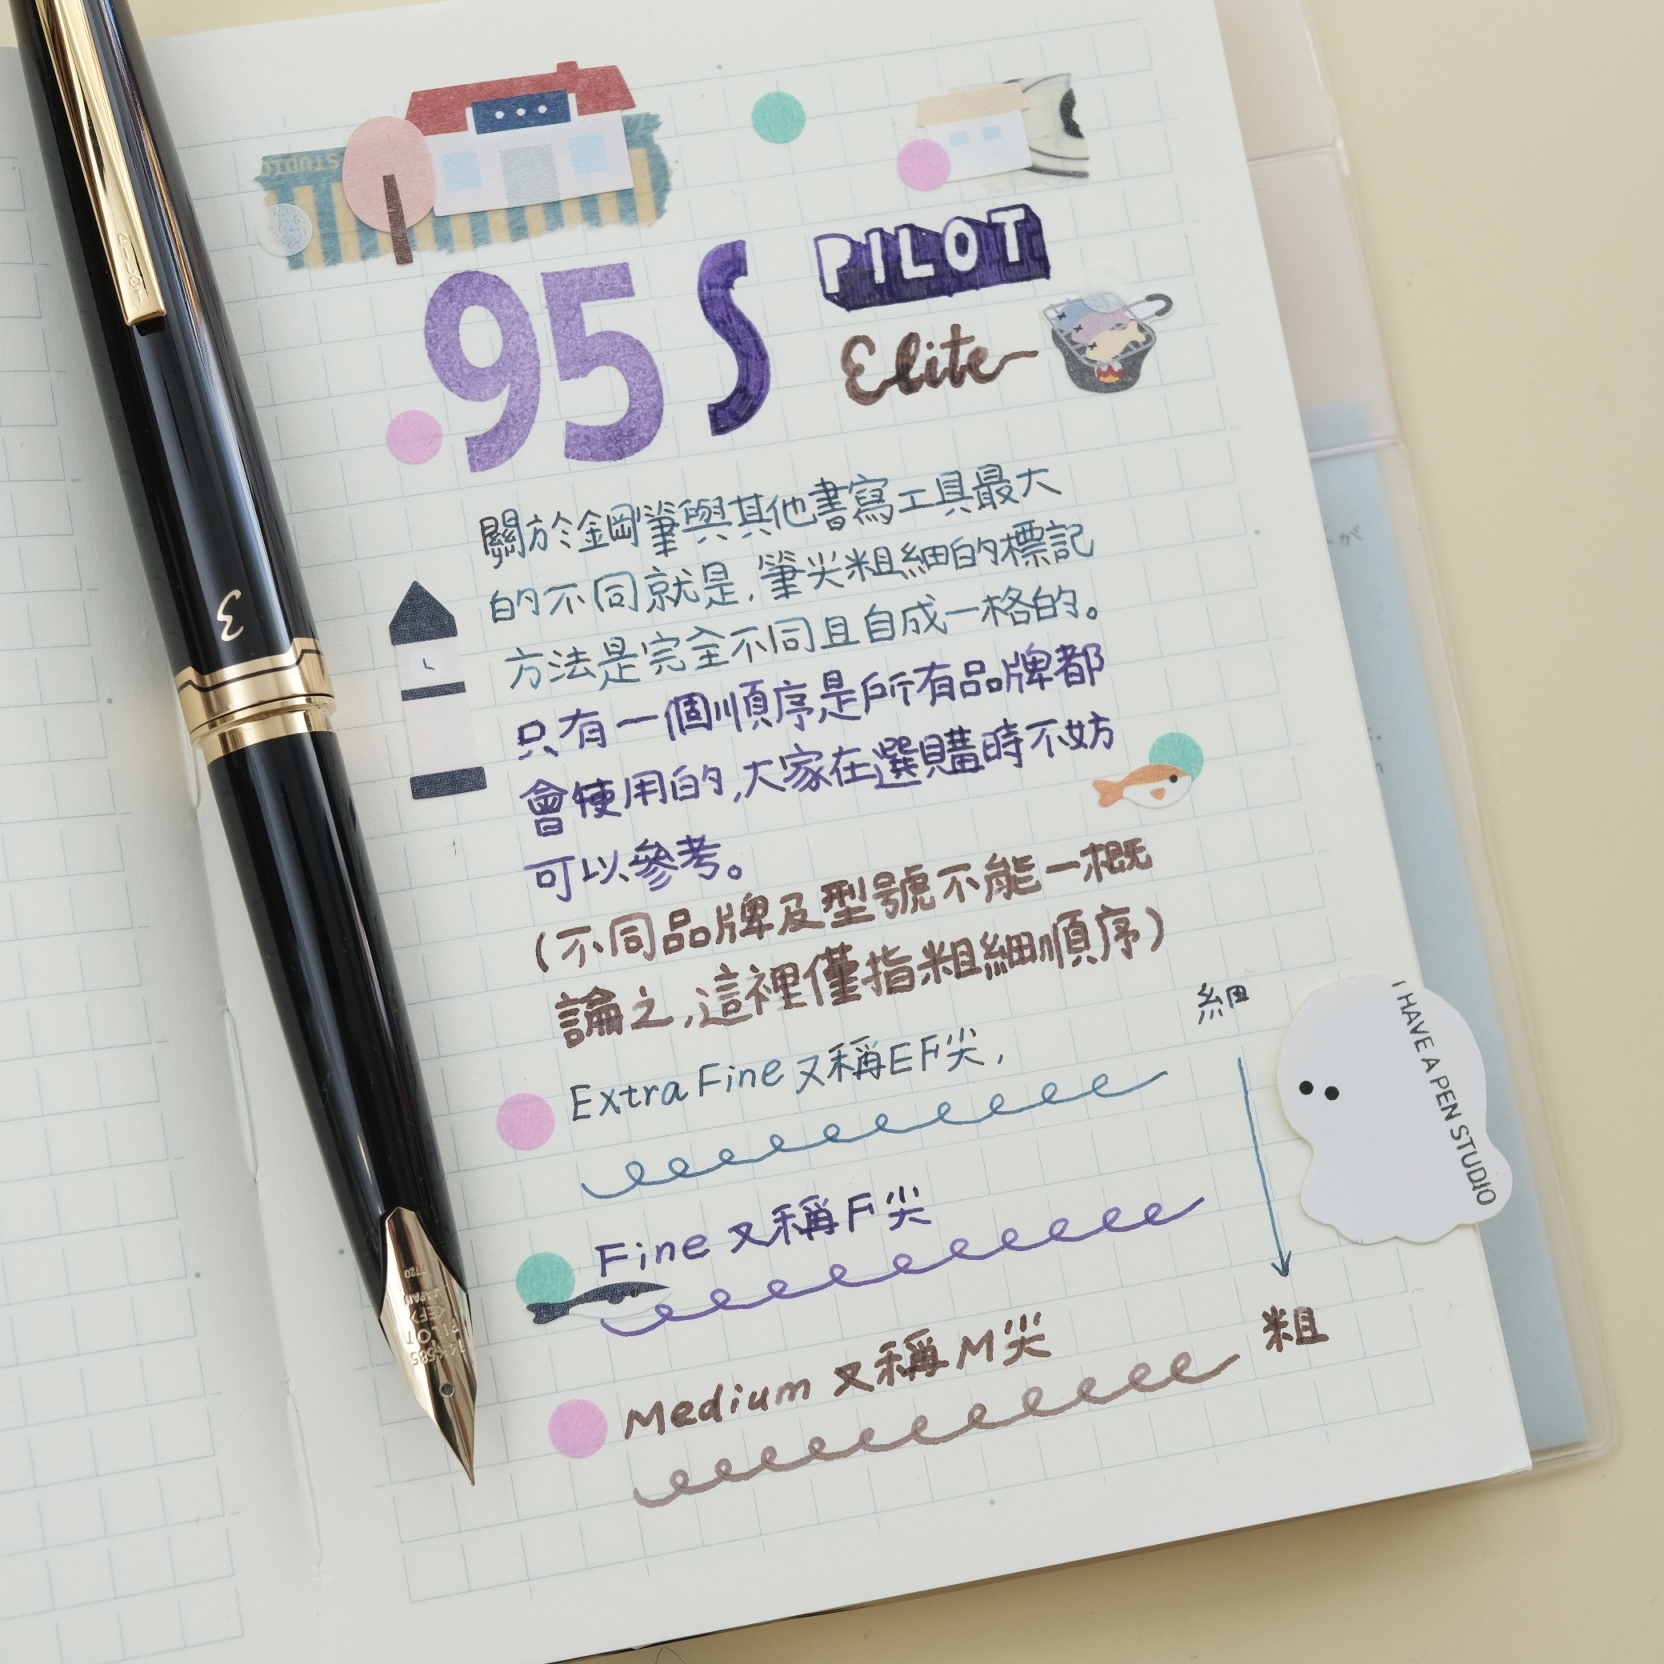 STUDIO
95S
PILOT
Elite
關於鋼筆與其他書寫工具最大
的不同就是,筆尖粗細的標記
方法是完全不同且自成一格的。
只有一個順序是所有品牌都
會使用的,大家在選購時不妨
可以參考。
(不同品牌及型號不能一概
論之,這裡僅指粗細順序)
細
Extra Fine 又稱EF尖,
Fine 又稱F尖
Medium 又稱M尖
粗
I HAVE A PEN STUDIO
3
14K585
PILOT
<EF>
JAPAN